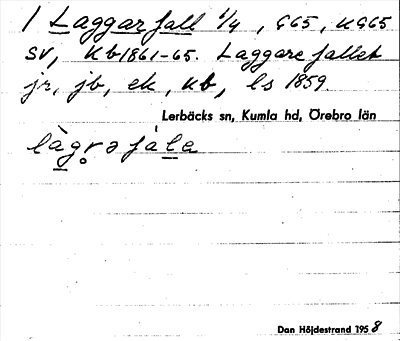 1 Laggarfall 1/4, G65, KG65
SV, Kb1861-65. Laggare fallet
jr, jb, ek, kb, ls 1859.
Lerbäcks sn, Kumla hd, Örebro län
làgr̥ə fàlə
Dan Höjdestrand 1958